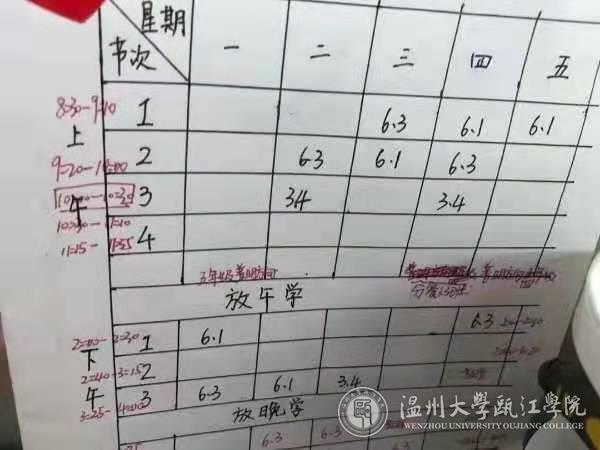 星期
节次 一 二 三 四 五
8:30-9:10 1 6.3 6.1 6.1
上
9:20-10:00 2 6.3 6.1 6.3
午 3 3.4 3.4
10:30-11:10
11:15-11:55 4
放午学
1 6.1 6.3
下
2:40-3:15 2
午 3 6.3 6.1 3.4
放晚学
6.3 6.3
6.3
温州大学瓯江学院
WENZHOU UNIVERSITY OUJIANG COLLEGE